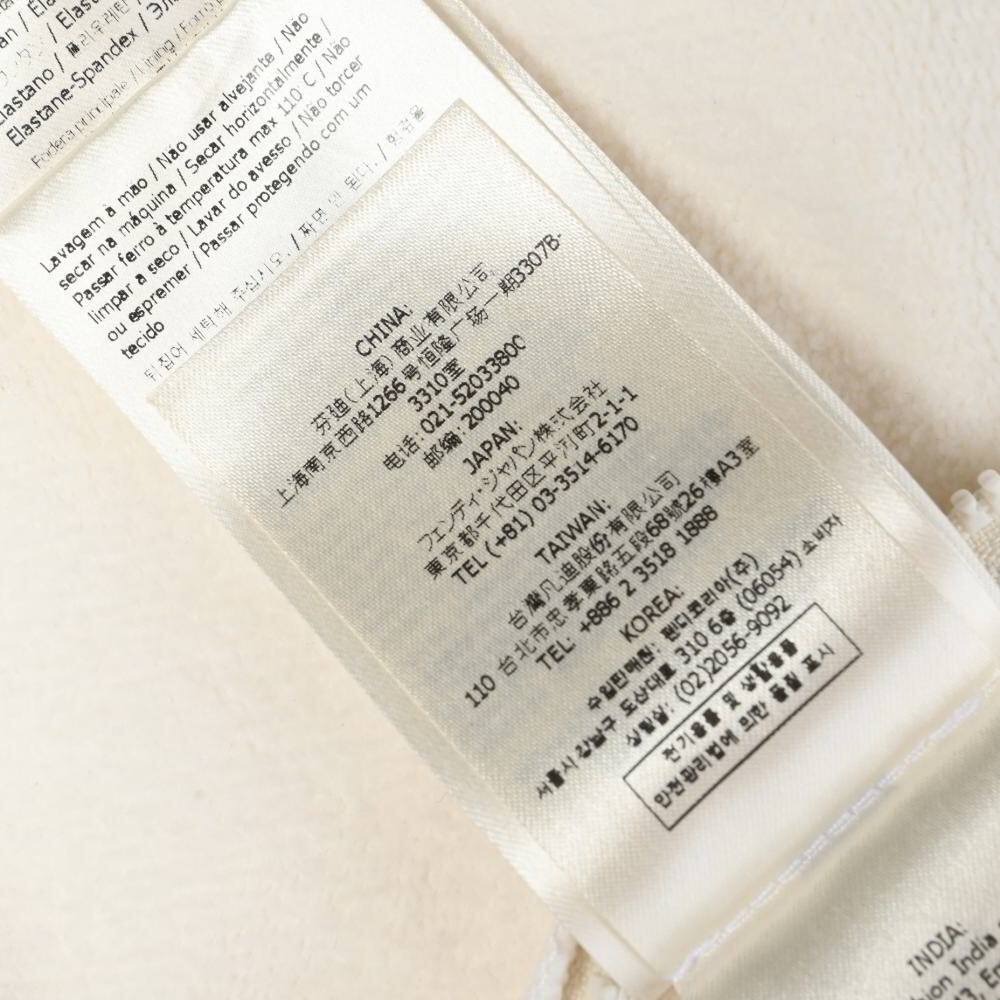 Elastano / Elastane-Spandex
Fodera principale / Lining / Forro
Lavagem à mão / Não usar alvejante / Não
secar na máquina / Secar horizontalmente /
Passar ferro à temperatura max 110 C / Não
limpar a seco / Lavar do avesso / Não torcer
ou espremer / Passar protegendo com um
tecido
뒤집어 세탁해 주십시오. / 짜면 안 된다. / 헝겊을
CHINA:
芬迪(上海) 商业有限公司
上海南京西路1266号恒隆广场一期3307B-
3310室
电话: 021-52033800
邮编: 200040
JAPAN:
フェンディ・ジャパン株式会社
東京都千代田区平河町2-1-1
TEL (+81) 03-3514-6170
TAIWAN:
台灣凡迪股份有限公司
110 台北市忠孝東路五段68號26樓A3室
TEL: +886 2 3518 1888
KOREA:
수입판매원: 펜디코리아(주)
서울시 강남구 도산대로 310 6층 (06054) 소비자
상담실: (02)2056-9092
전기용품 및 생활용품
안전관리법에 의한 품질 표시
INDIA:
India